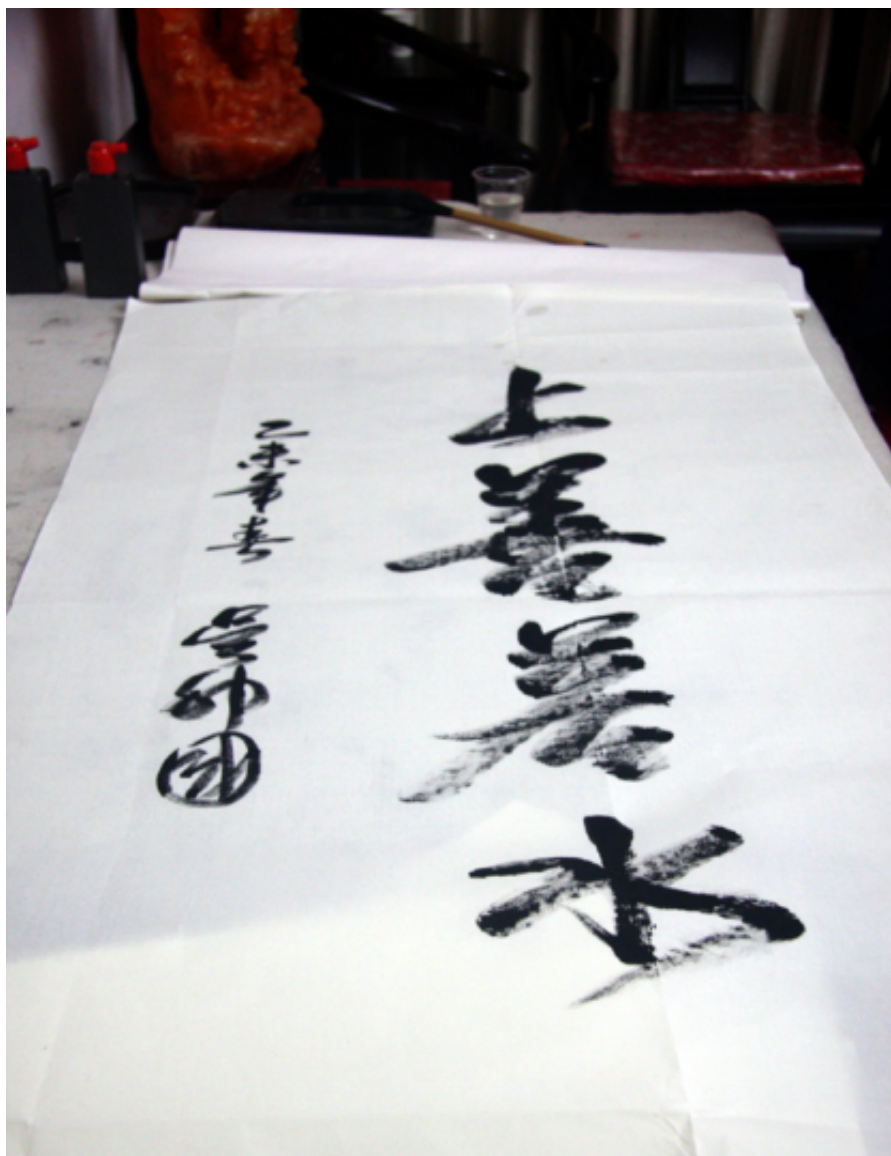 上善若水
乙未年春 吴